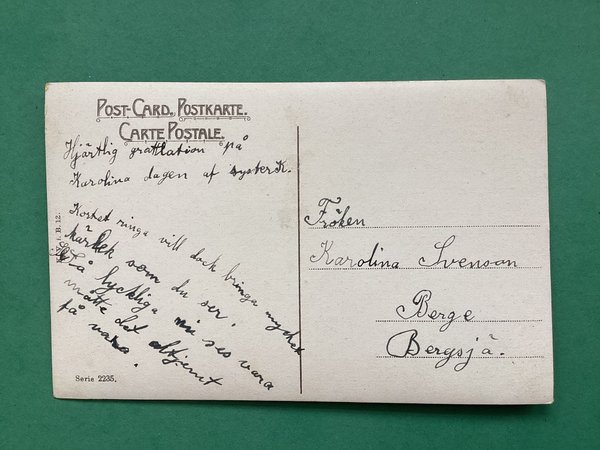 POST-CARD. POSTKARTE.
CARTE POSTALE.
Hjärtlig grattlation på
Karolina dagen af syster K.
Kortet ringa vill dock bringa mycket
kärlek som du ser,
Så lyckliga vi ses vara
måtte det altjemt
få vara.
Fröken
Karolina Svenson
Berge
Bergsjö.
B. 12.
Serie 2235.